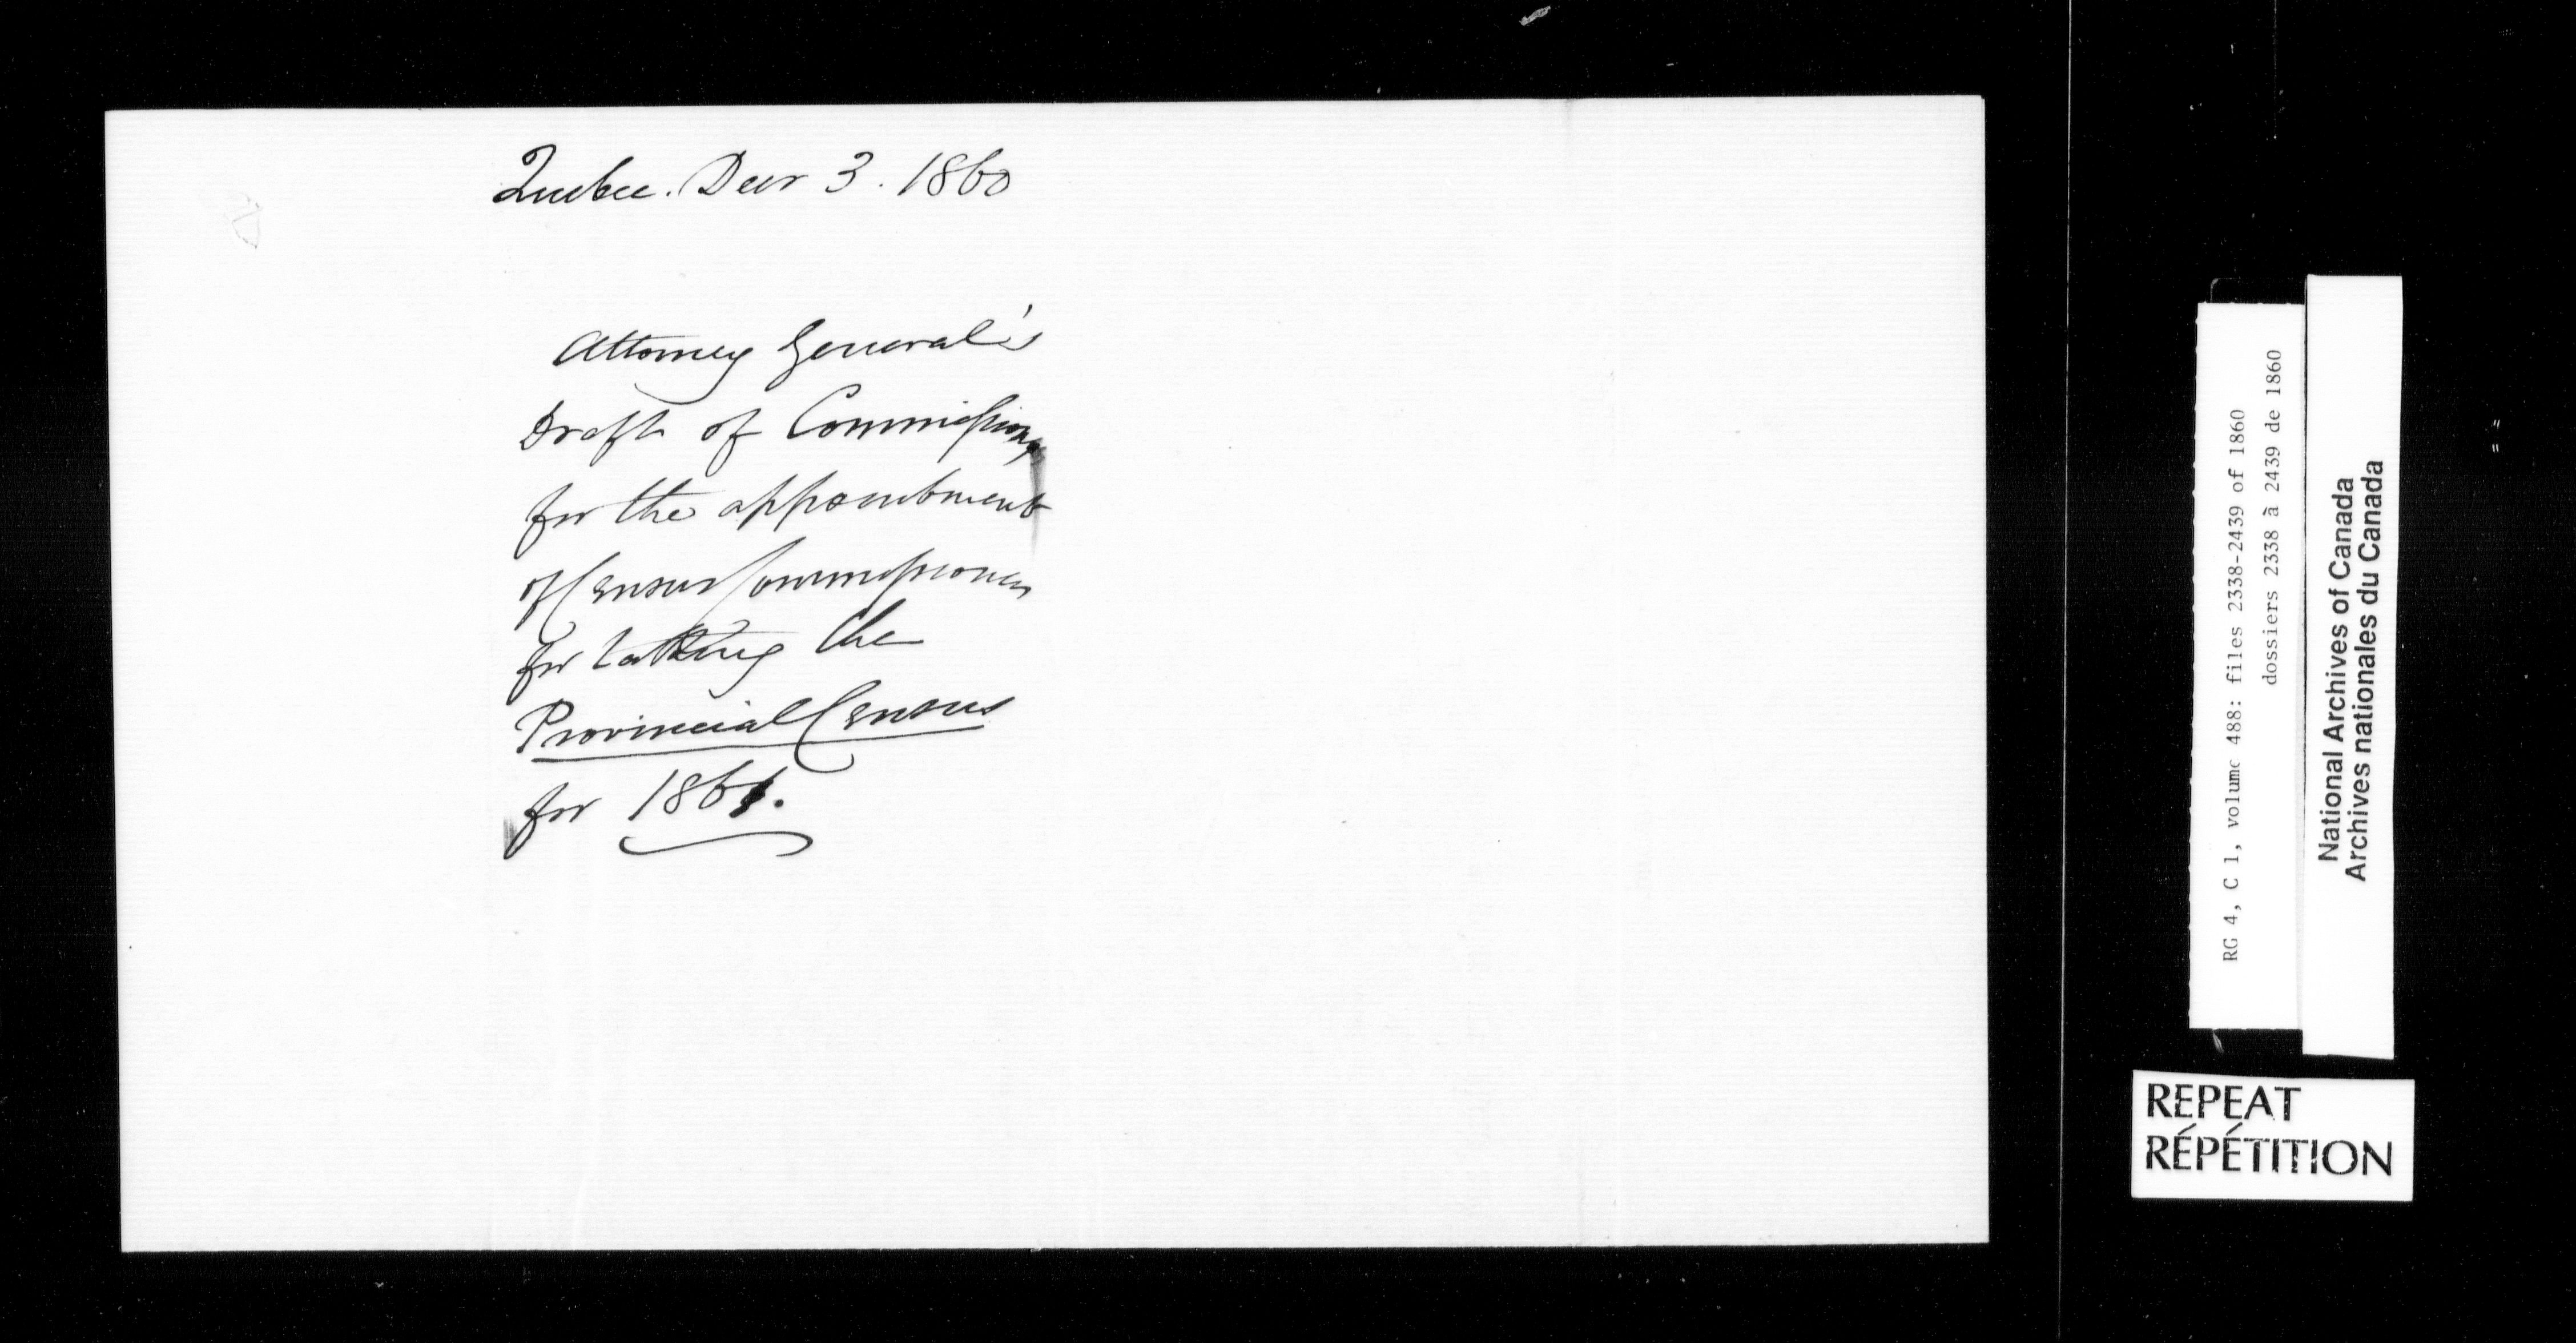 Quebec. Decr 3. 1860
Attorney General's
Draft of Commissions
for the appointment
of Census Commissioners
for taking the
Provincial Census
for 1861.
RG 4, C 1, volume 488: files 2338-2439 of 1860
dossiers 2338 à 2439 de 1860
National Archives of Canada
Archives nationales du Canada
REPEAT
RÉPÉTITION